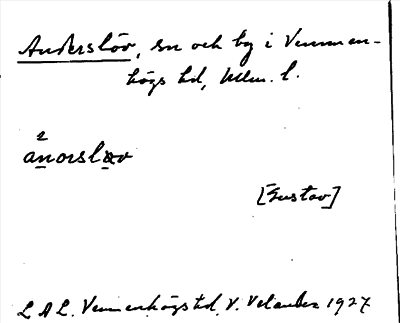 Anderslöv, sn och by i Vemmen-
högs hd, Mlm. l.
2
anorslæv
[Gustav]
L A L. Vemmenhögs hd. V. Velander 1927